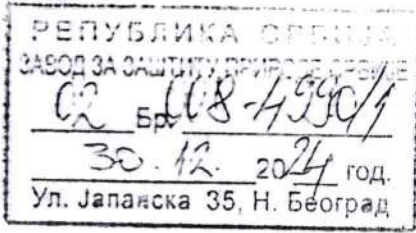 РЕПУБЛИКА СРБИЈА
ЗАВОД ЗА ЗАШТИТУ ПРИРОДЕ СРБИЈЕ
02 Бр. 018-4990/1
30.12. 2024 год.
Ул. Јапанска 35, Н. Београд